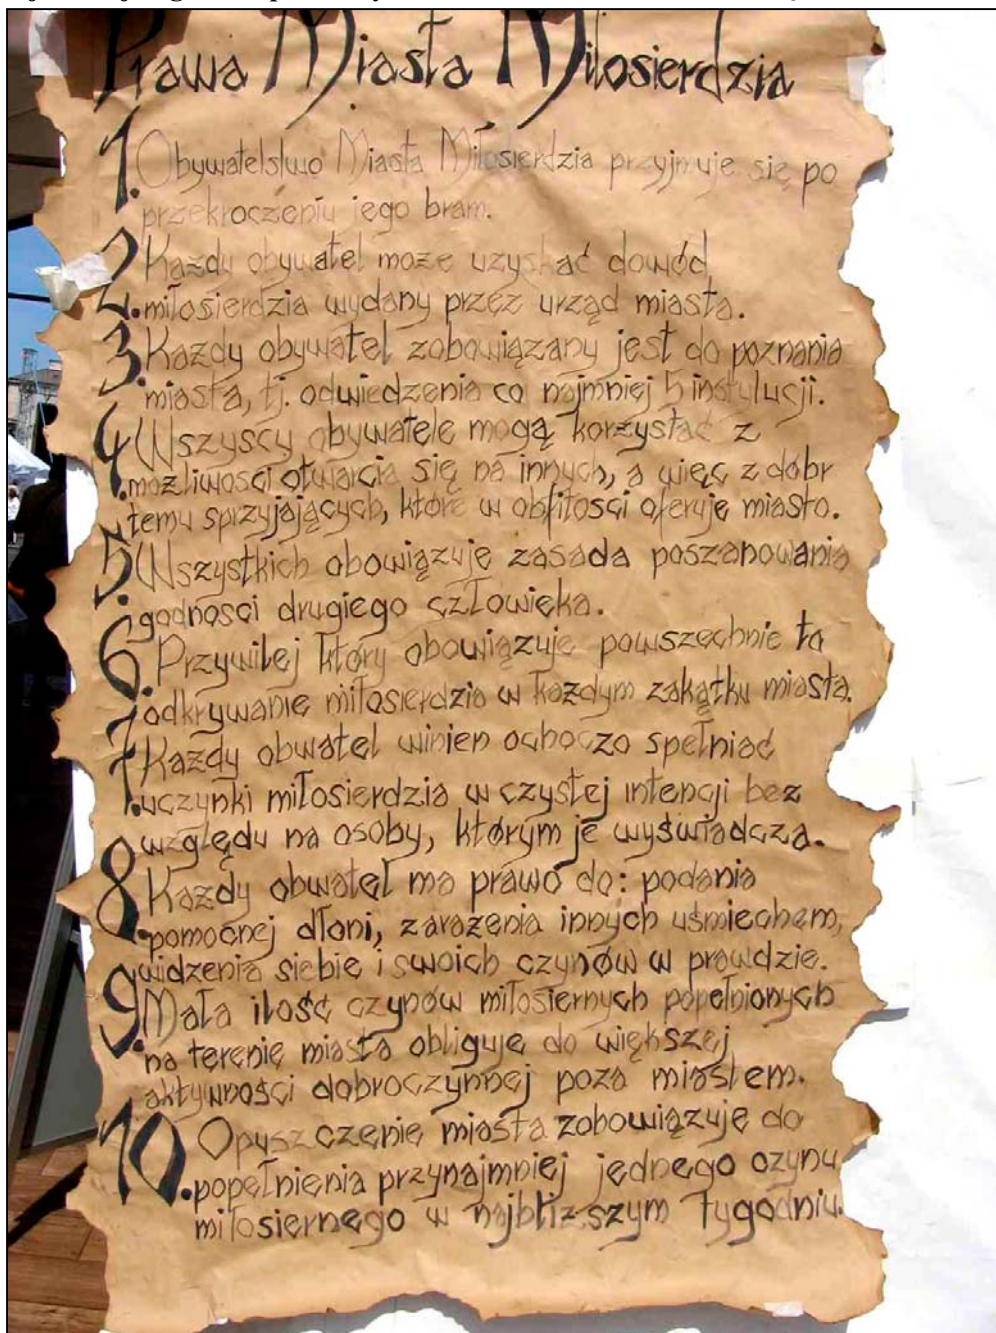 Prawa Miasta Miłosierdzia
1. Obywatelstwo Miasta Miłosierdzia przyjmuje się po
przekroczeniu jego bram.
2. Każdy obywatel może uzyskać dowód
miłosierdzia wydany przez urząd miasta.
3. Każdy obywatel zobowiązany jest do poznania
miasta, tj. odwiedzenia co najmniej 5 instytucji.
4. Wszyscy obywatele mogą korzystać z
możliwości otwarcia się na innych, a więc z dóbr
temu sprzyjających, które w obfitości oferuje miasto.
5. Wszystkich obowiązuje zasada poszanowania
godności drugiego człowieka.
6. Przywilej który obowiązuje powszechnie to
odkrywanie miłosierdzia w każdym zakątku miasta.
7. Każdy obwatel winien ochoczo spełniać
uczynki miłosierdzia w czystej intencji bez
względu na osoby, którym je wyświadcza.
8. Każdy obwatel ma prawo do: podania
pomocnej dłoni, zarażenia innych uśmiechem,
widzenia siebie i swoich czynów w prawdzie.
9. Mała ilość czynów miłosiernych popełnionych
na terenie miasta obliguje do większej
aktywności dobroczynnej poza miastem.
10. Opuszczenie miasta zobowiązuje do
popełnienia przynajmniej jednego czynu
miłosiernego w najbliższym tygodniu.